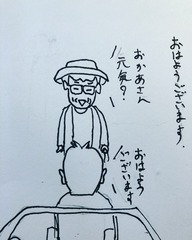 おはようございます.
おかあさん
元気?
おはよう
ございます